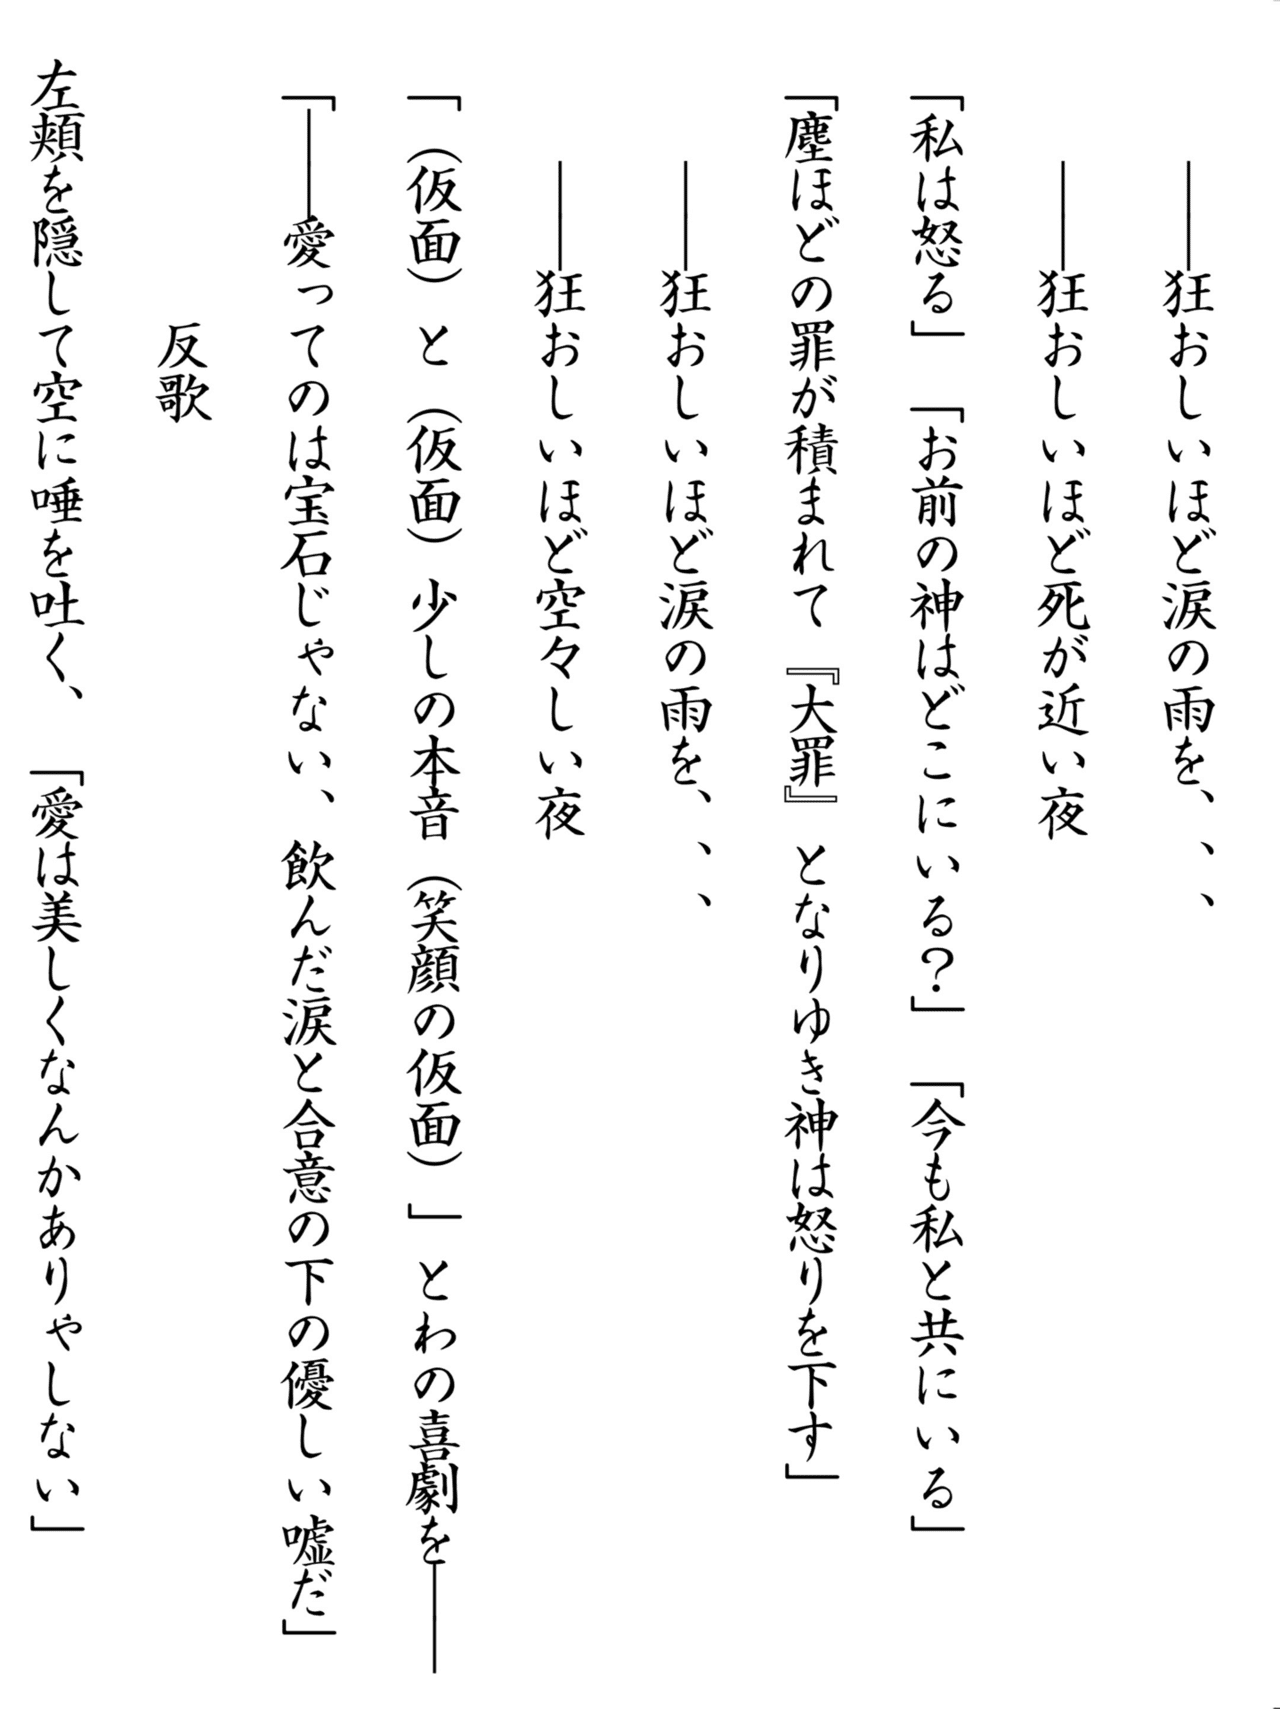 ――狂おしいほど涙の雨を、、、
――狂おしいほど死が近い夜
「私は怒る」「お前の神はどこにいる？」「今も私と共にいる」
「塵ほどの罪が積まれて『大罪』となりゆき神は怒りを下す」
――狂おしいほど涙の雨を、、、
――狂おしいほど空々しい夜
「（仮面）と（仮面）少しの本音（笑顔の仮面）」とわの喜劇を――
「――愛ってのは宝石じゃない、飲んだ涙と合意の下の優しい嘘だ」
反歌
左頬を隠して空に唾を吐く、「愛は美しくなんかありゃしない」